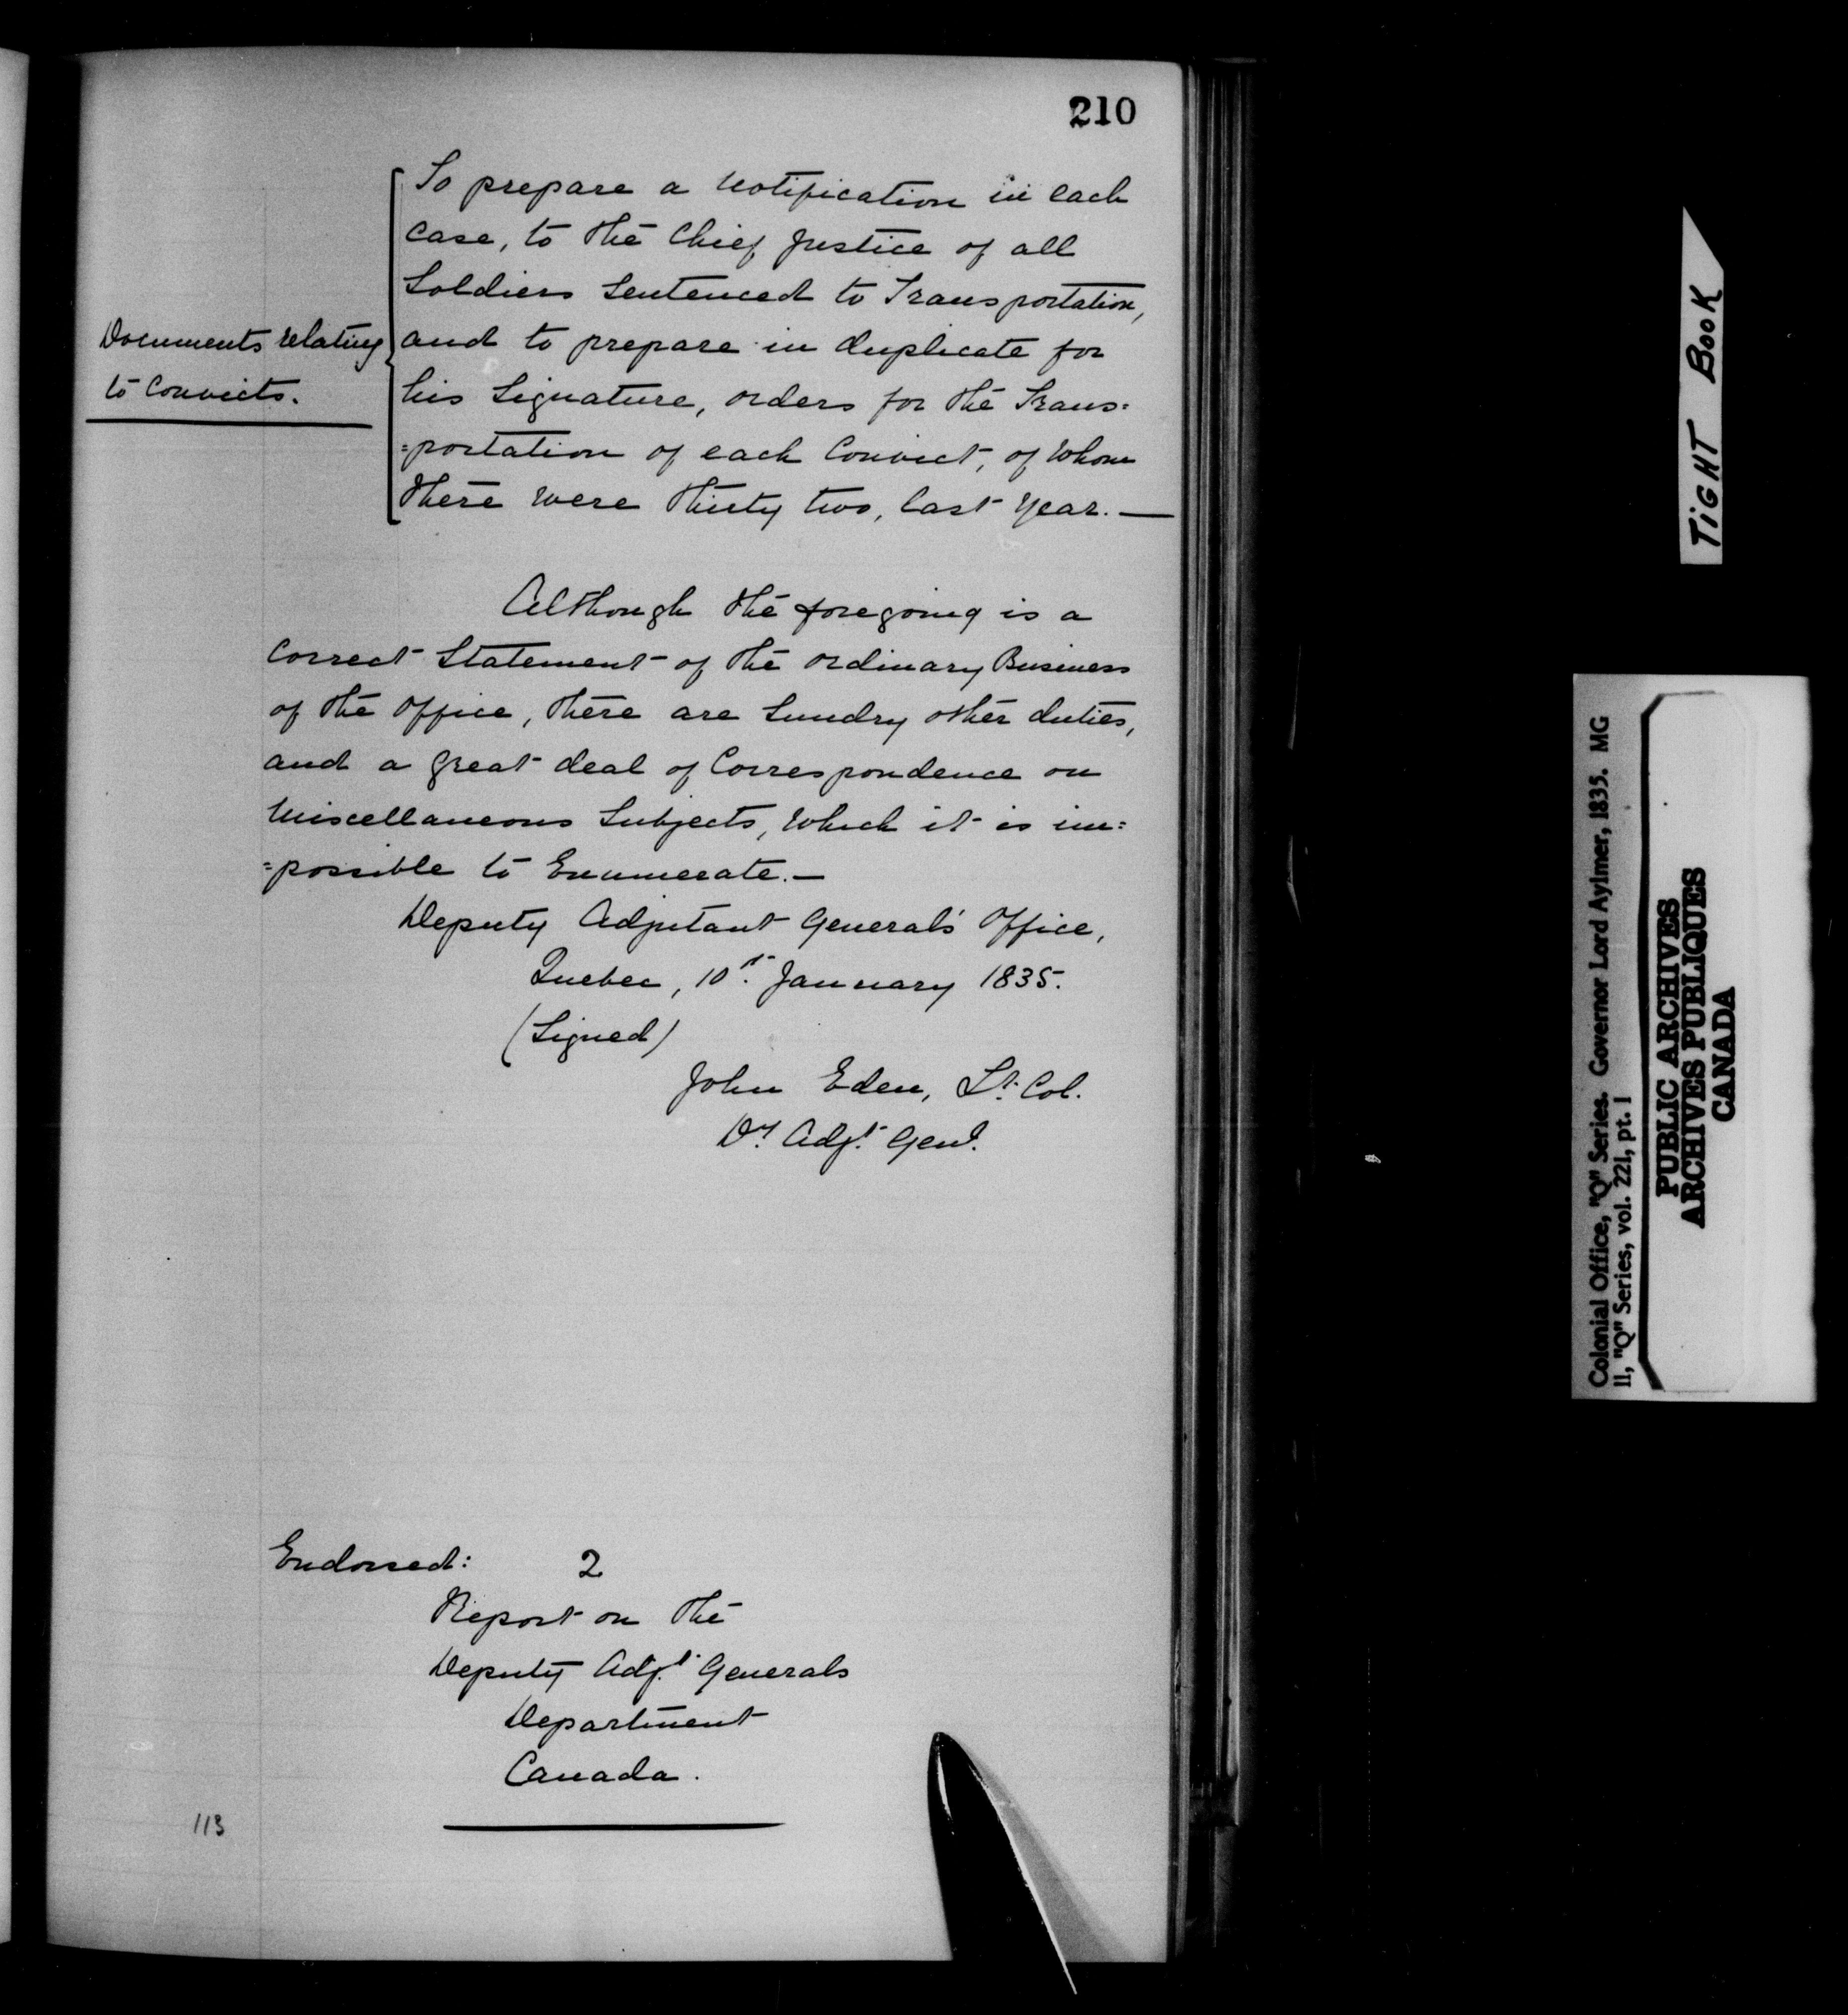 210
To prepare a Notification in each
Case, to the Chief Justice of all
Soldiers Sentenced to Transportation,
Documents relating
to Convicts.
and to prepare in duplicate for
his Signature, orders for the Trans=
=portation of each Convict, of Whom
there Were Thirty two, last Year.—
Although the foregoing is a
Correct Statement of the ordinary Business
of the Office, there are Sundry other duties,
and a Great deal of Correspondence on
Miscellaneous Subjects, Which it is im=
=possible to Enumerate.—
Deputy Adjutant General's Office,
Quebec, 10th. January 1835.
(Signed)
John Eden, Lt. Col.
Dy. Adjt. Genl.
Endorsed: 2
Report on the
Deputy Adjt. Generals
Department
Canada.
113
TIGHT BOOK
Colonial Office, "Q" Series. Governor Lord Aylmer, 1835. MG
11, "Q" Series, vol. 221, pt. 1
PUBLIC ARCHIVES
ARCHIVES PUBLIQUES
CANADA